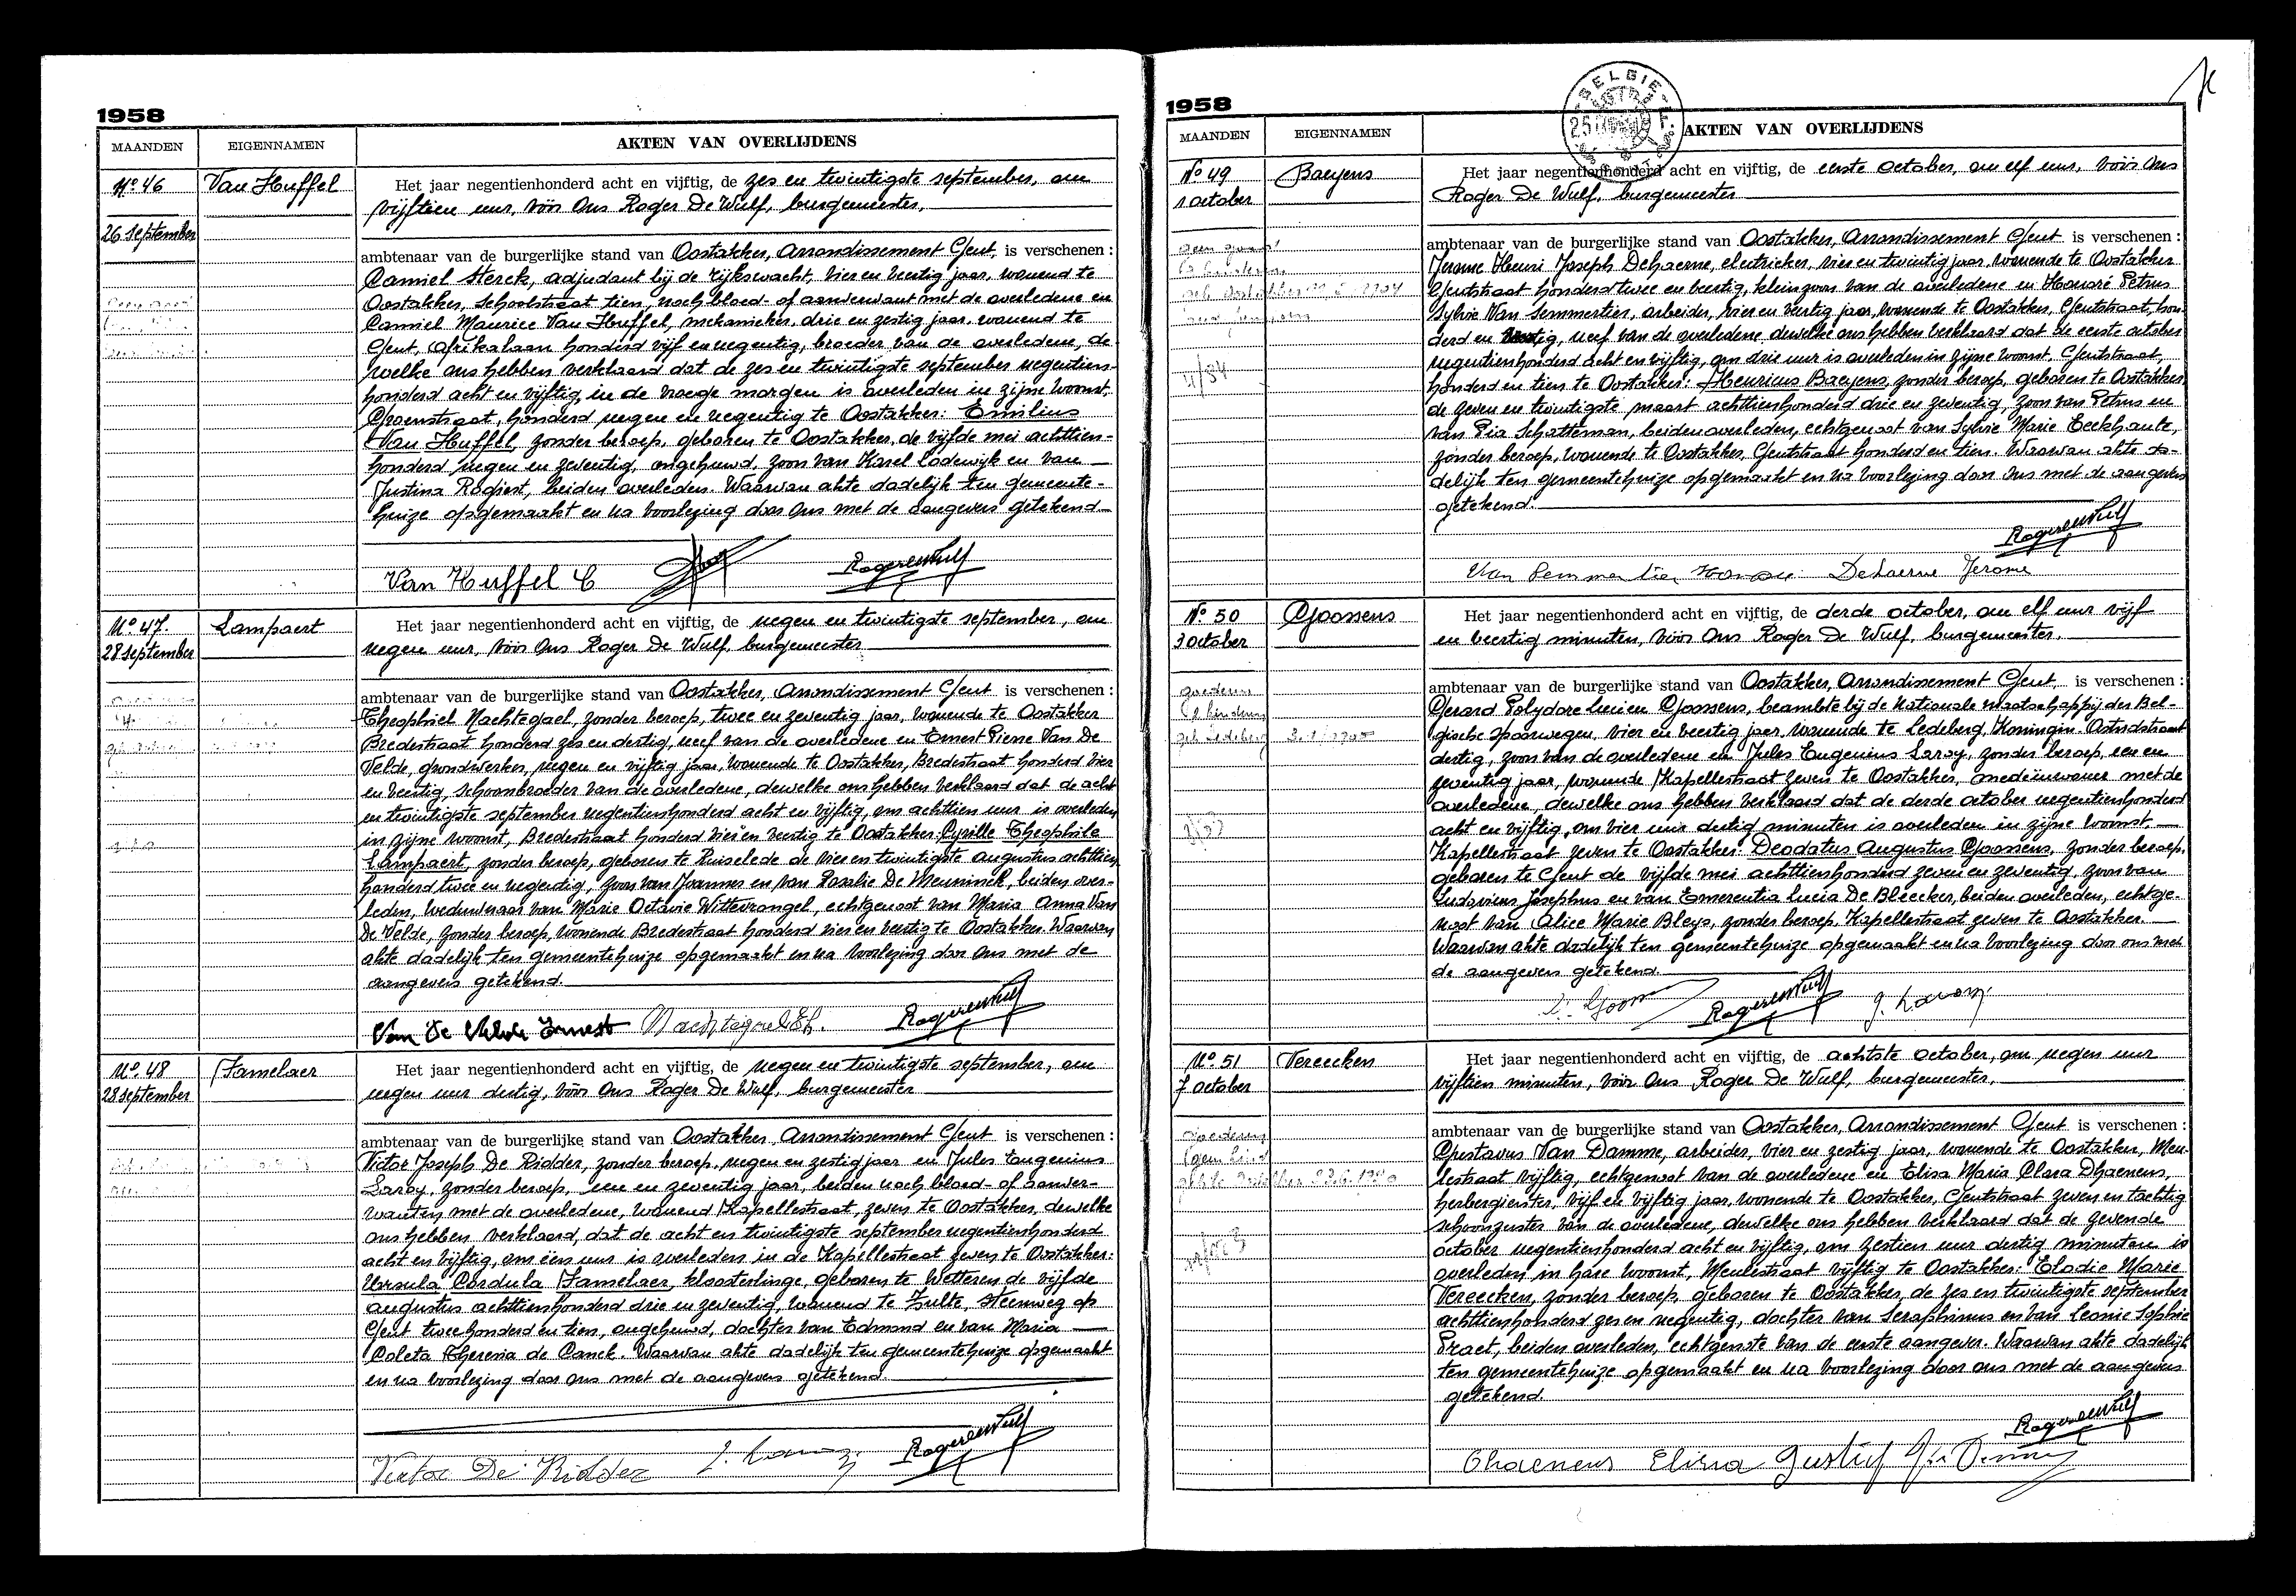 1958
MAANDEN EIGENNAMEN AKTEN VAN OVERLIJDENS
No 46 Van Huffel Het jaar negentienhonderd acht en vijftig, de zes en twintigste september, om
vijftien uur, vóór Ons Roger De Wulf, burgemeester,
26 september
ambtenaar van de burgerlijke stand van Oostakker, Arrondissement Gent, is verschenen :
Camiel Sterck, adjudant bij de rijkswacht, vier en veertig jaar, wonend te
Oostakker, Schoolstraat tien, noch bloed- of aanverwant met de overledene en
Camiel Maurice Van Huffel, mekanieker, drie en zestig jaar, wonend te
Gent, Afrikalaan honderd vijf en negentig, broeder van de overledene, de-
welke ons hebben verklaard dat de zes en twintigste september negentien-
honderd acht en vijftig, in de vroege morgen is overleden in zijne woonst,
Groenstraat, honderd negen en negentig te Oostakker: Emilius
Van Huffel, zonder beroep, geboren te Oostakker, de vijfde mei achttien-
honderd negen en zeventig, ongehuwd, zoon van Karel Lodewijk en van
Justina Rogiest, beiden overleden. Waarvan akte dadelijk ten gemeente-
huize opgemaakt en na voorlezing door Ons met de aangevers getekend
Van Huffel C RogerdeWulf
No 47. Lampaert Het jaar negentienhonderd acht en vijftig, de negen en twintigste september, om
28 september negen uur, vóór Ons Roger De Wulf, burgemeester
ambtenaar van de burgerlijke stand van Oostakker, Arrondissement Gent is verschenen :
Theophiel Nachtegael, zonder beroep, twee en zeventig jaar, wonende te Oostakker
Bredestraat honderd zes en dertig, neef van de overledene en Ernest Pierre Van De
Velde, grondwerker, negen en vijftig jaar, wonende te Oostakker, Bredestraat honderd vier
en veertig, schoonbroeder van de overledene, dewelke ons hebben verklaard dat de acht
en twintigste september negentienhonderd acht en vijftig, om achttien uur is overleden
in zijne woonst, Bredestraat honderd vier en veertig te Oostakker: Cyrille Theophile
Lampaert, zonder beroep, geboren te Ruiselede de vier en twintigste augustus achttien
honderd twee en negentig, zoon van Joannes en van Rosalie De Meuninck, beiden over-
leden, weduwnaar van Marie Octavie Wittevrongel, echtgenoot van Maria Anna Van
De Velde, zonder beroep, wonende Bredestraat honderd vier en veertig te Oostakker. Waarvan
akte dadelijk ten gemeentehuize opgemaakt en na voorlezing door Ons met de
aangevers getekend.
Van De Velde Ernest Nachtegael Th. RogerdeWulf
No 48 Famelaer Het jaar negentienhonderd acht en vijftig, de negen en twintigste september, om
28 september negen uur dertig, vóór Ons Roger De Wulf, burgemeester
ambtenaar van de burgerlijke stand van Oostakker, Arrondissement Gent is verschenen :
Victor Joseph De Ridder, zonder beroep, negen en zestig jaar en Jules Eugenius
Laroy, zonder beroep, een en zeventig jaar, beiden noch bloed- of aanver-
wanten met de overledene, wonend Kapellestraat, zeven te Oostakker, dewelke
ons hebben verklaard, dat de acht en twintigste september negentienhonderd
acht en vijftig, om één uur is overleden in de Kapellestraat zeven te Oostakker:
Ursula Cordula Famelaer, kloosterlinge, geboren te Wetteren de vijfde
augustus achttienhonderd drie en zeventig, wonend te Zulte, Steenweg op
Gent tweehonderd en tien, ongehuwd, dochter van Edmond en van Maria
Coleta Theresia de Canck. Waarvan akte dadelijk ten gemeentehuize opgemaakt
en na voorlezing door Ons met de aangevers getekend
Victor De Ridder J. Laroy RogerdeWulf
1958
MAANDEN EIGENNAMEN AKTEN VAN OVERLIJDENS
No 49 Baeyens Het jaar negentienhonderd acht en vijftig, de eerste october, om elf uur, vóór Ons
1 october Roger De Wulf, burgemeester
ambtenaar van de burgerlijke stand van Oostakker, Arrondissement Gent is verschenen :
Jerome Henri Joseph Dehaerne, electrieker, vier en twintig jaar, wonende te Oostakker
Gentstraat honderd twee en veertig, kleinzoon van de overledene en Honoré Petrus
Sylvie Van Lemmertier, arbeider, vier en veertig jaar, wonende te Oostakker, Gentstraat, hon-
derd en veertig, neef van de overledene dewelke ons hebben verklaard dat de eerste october
negentienhonderd acht en vijftig, om drie uur is overleden in zijne woonst, Gentstraat,
honderd en tien te Oostakker: Henricus Baeyens, zonder beroep, geboren te Oostakker
de zeven en twintigste maart achttienhonderd drie en zeventig, zoon van Petrus en
van Pia Schatteman, beiden overleden, echtgenoot van Sylvie Marie Eeckhaute,
zonder beroep, wonende te Oostakker, Gentstraat honderd en tien. Waarvan akte da-
delijk ten gemeentehuize opgemaakt en na voorlezing door Ons met de aangevers
getekend.
RogerdeWulf
Dehaerne Jerome
No 50 Goossens Het jaar negentienhonderd acht en vijftig, de derde october, om elf uur vijf
3 october en veertig minuten, vóór Ons Roger De Wulf, burgemeester.
ambtenaar van de burgerlijke stand van Oostakker, Arrondissement Gent, is verschenen :
Gerard Polydore Lucien Goossens, beambte bij de Nationale maatschappij der Bel-
gische spoorwegen, vier en veertig jaar, wonende te Ledeberg, Koningin Astridstraat
dertig, zoon van de overledene en Jules Eugenius Laroy, zonder beroep, een en
zeventig jaar, wonende Kapellestraat zeven te Oostakker, medeinwoner met de
overledene, dewelke ons hebben verklaard dat de derde october negentienhonderd
acht en vijftig, om vier uur dertig minuten is overleden in zijne woonst,
Kapellestraat zeven te Oostakker: Deodatus Augustus Goossens, zonder beroep,
geboren te Gent de vijfde mei achttienhonderd zeven en zeventig, zoon van
Ludovicus Josephus en van Emerentia Lucia De Bleecker, beiden overleden, echtge-
noot van Alice Marie Bleys, zonder beroep, Kapellestraat zeven te Oostakker.
Waarvan akte dadelijk ten gemeentehuize opgemaakt en na voorlezing door ons met
de aangevers getekend.
RogerdeWulf J. Laroy
No 51 Vereecken Het jaar negentienhonderd acht en vijftig, de achtste october, om negen uur
7 october vijftien minuten, vóór Ons Roger De Wulf, burgemeester,
ambtenaar van de burgerlijke stand van Oostakker, Arrondissement Gent is verschenen :
Gustavus Van Damme, arbeider, vier en zestig jaar, wonende te Oostakker, Meu-
lestraat vijftig, echtgenoot van de overledene en Elisa Maria Clara Dhaenens,
herbergierster, vijf en vijftig jaar, wonende te Oostakker, Gentstraat zeven en tachtig
schoonzuster van de overledene, dewelke ons hebben verklaard dat de zevende
october negentienhonderd acht en vijftig, om zestien uur dertig minuten is
overleden in hare woonst, Meulestraat vijftig te Oostakker: Elodie Marie
Vereecken, zonder beroep, geboren te Oostakker, de zes en twintigste september
achttienhonderd zes en negentig, dochter van Seraphinus en van Leonie Sophie
Praet, beiden overleden, echtgenote van de eerste aangever. Waarvan akte dadelijk
ten gemeentehuize opgemaakt en na voorlezing door ons met de aangevers
getekend.
RogerdeWulf
Dhaenens Elisa Gustaf